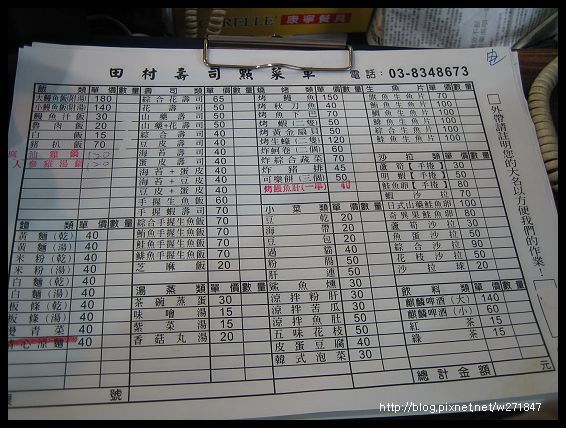 CORELLE 康寧餐具
田村壽司點菜單 電話：03-8348673
飯類 單價 數量
大鰻魚飯(附湯) 180
小鰻魚飯(附湯) 140
鰻魚汁飯 30
魯肉飯 20
白飯 15
豬扒飯 70
麻油雞鍋 150
人參雞湯鍋 150
麵類 單價 數量
黃麵(乾) 40
黃麵(湯) 40
米粉(乾) 40
米粉(湯) 40
白麵(乾) 40
白麵(湯) 40
板條(乾) 40
板條(湯) 40
燙青菜 40
涼麵 40
壽司 單價 數量
綜合花壽司 65
花壽司 50
山藥壽司 50
山藥+花壽司 50
綜合壽司 40
豆皮壽司 40
海苔壽司 40
海苔+蛋皮 40
蛋皮 40
海苔+豆皮 40
豆皮+蛋皮 40
手握生魚 60
手握蝦壽司 70
綜合手握生魚飯 70
鮪魚手握生魚飯 70
鮭魚手握生魚飯 70
鯡魚手握生魚飯 70
芝麻飯 20
湯蒸類 單價 數量
茶碗蒸蛋 30
味噌湯 15
紫菜湯 15
香菇丸湯 20
燒烤類 單價 數量
烤鰻魚 150
烤秋刀魚 40
烤魚下巴 70
烤蝦(二隻) 50
烤黃金扇貝 50
烤生蠔(二隻) 120
炸蚵卷(二個) 60
炸綜合蔬菜 70
炸豬排 45
可樂餅(三個) 50
烤鰻魚肝(一串) 40
小菜類 單價 數量
豆乾 20
海帶 20
豆包 20
過貓 40
粉腸 50
肝連 50
鯊魚燻 30
涼拌粉肝 30
涼拌苦瓜 30
涼拌魚肚 30
五味花枝 50
皮蛋豆腐 40
韓式泡菜 30
生魚片 單價 數量
旗魚生魚片 70
鮪魚生魚片 100
鮭魚生魚片 100
鯡魚生魚片 100
綜合生魚片 100
沙拉類 單價 數量
蘆筍【手捲】 30
明蝦【手捲】 50
鮭魚卵【手捲】 80
蝦沙拉 70
日式山藥鮭魚卵 100
奇異果鮭魚卵 100
蘆筍沙拉 30
魚卵沙拉 50
綜合沙拉 90
花枝沙拉 50
沙拉球 20
飲料類 單價 數量
麒麟啤酒(大) 140
麒麟啤酒(小) 60
紅茶 15
綠茶 15
總計金額 元
號
□外帶請註明您的大名以方便我們的作業！
http://blog.pixnet.net/w271847